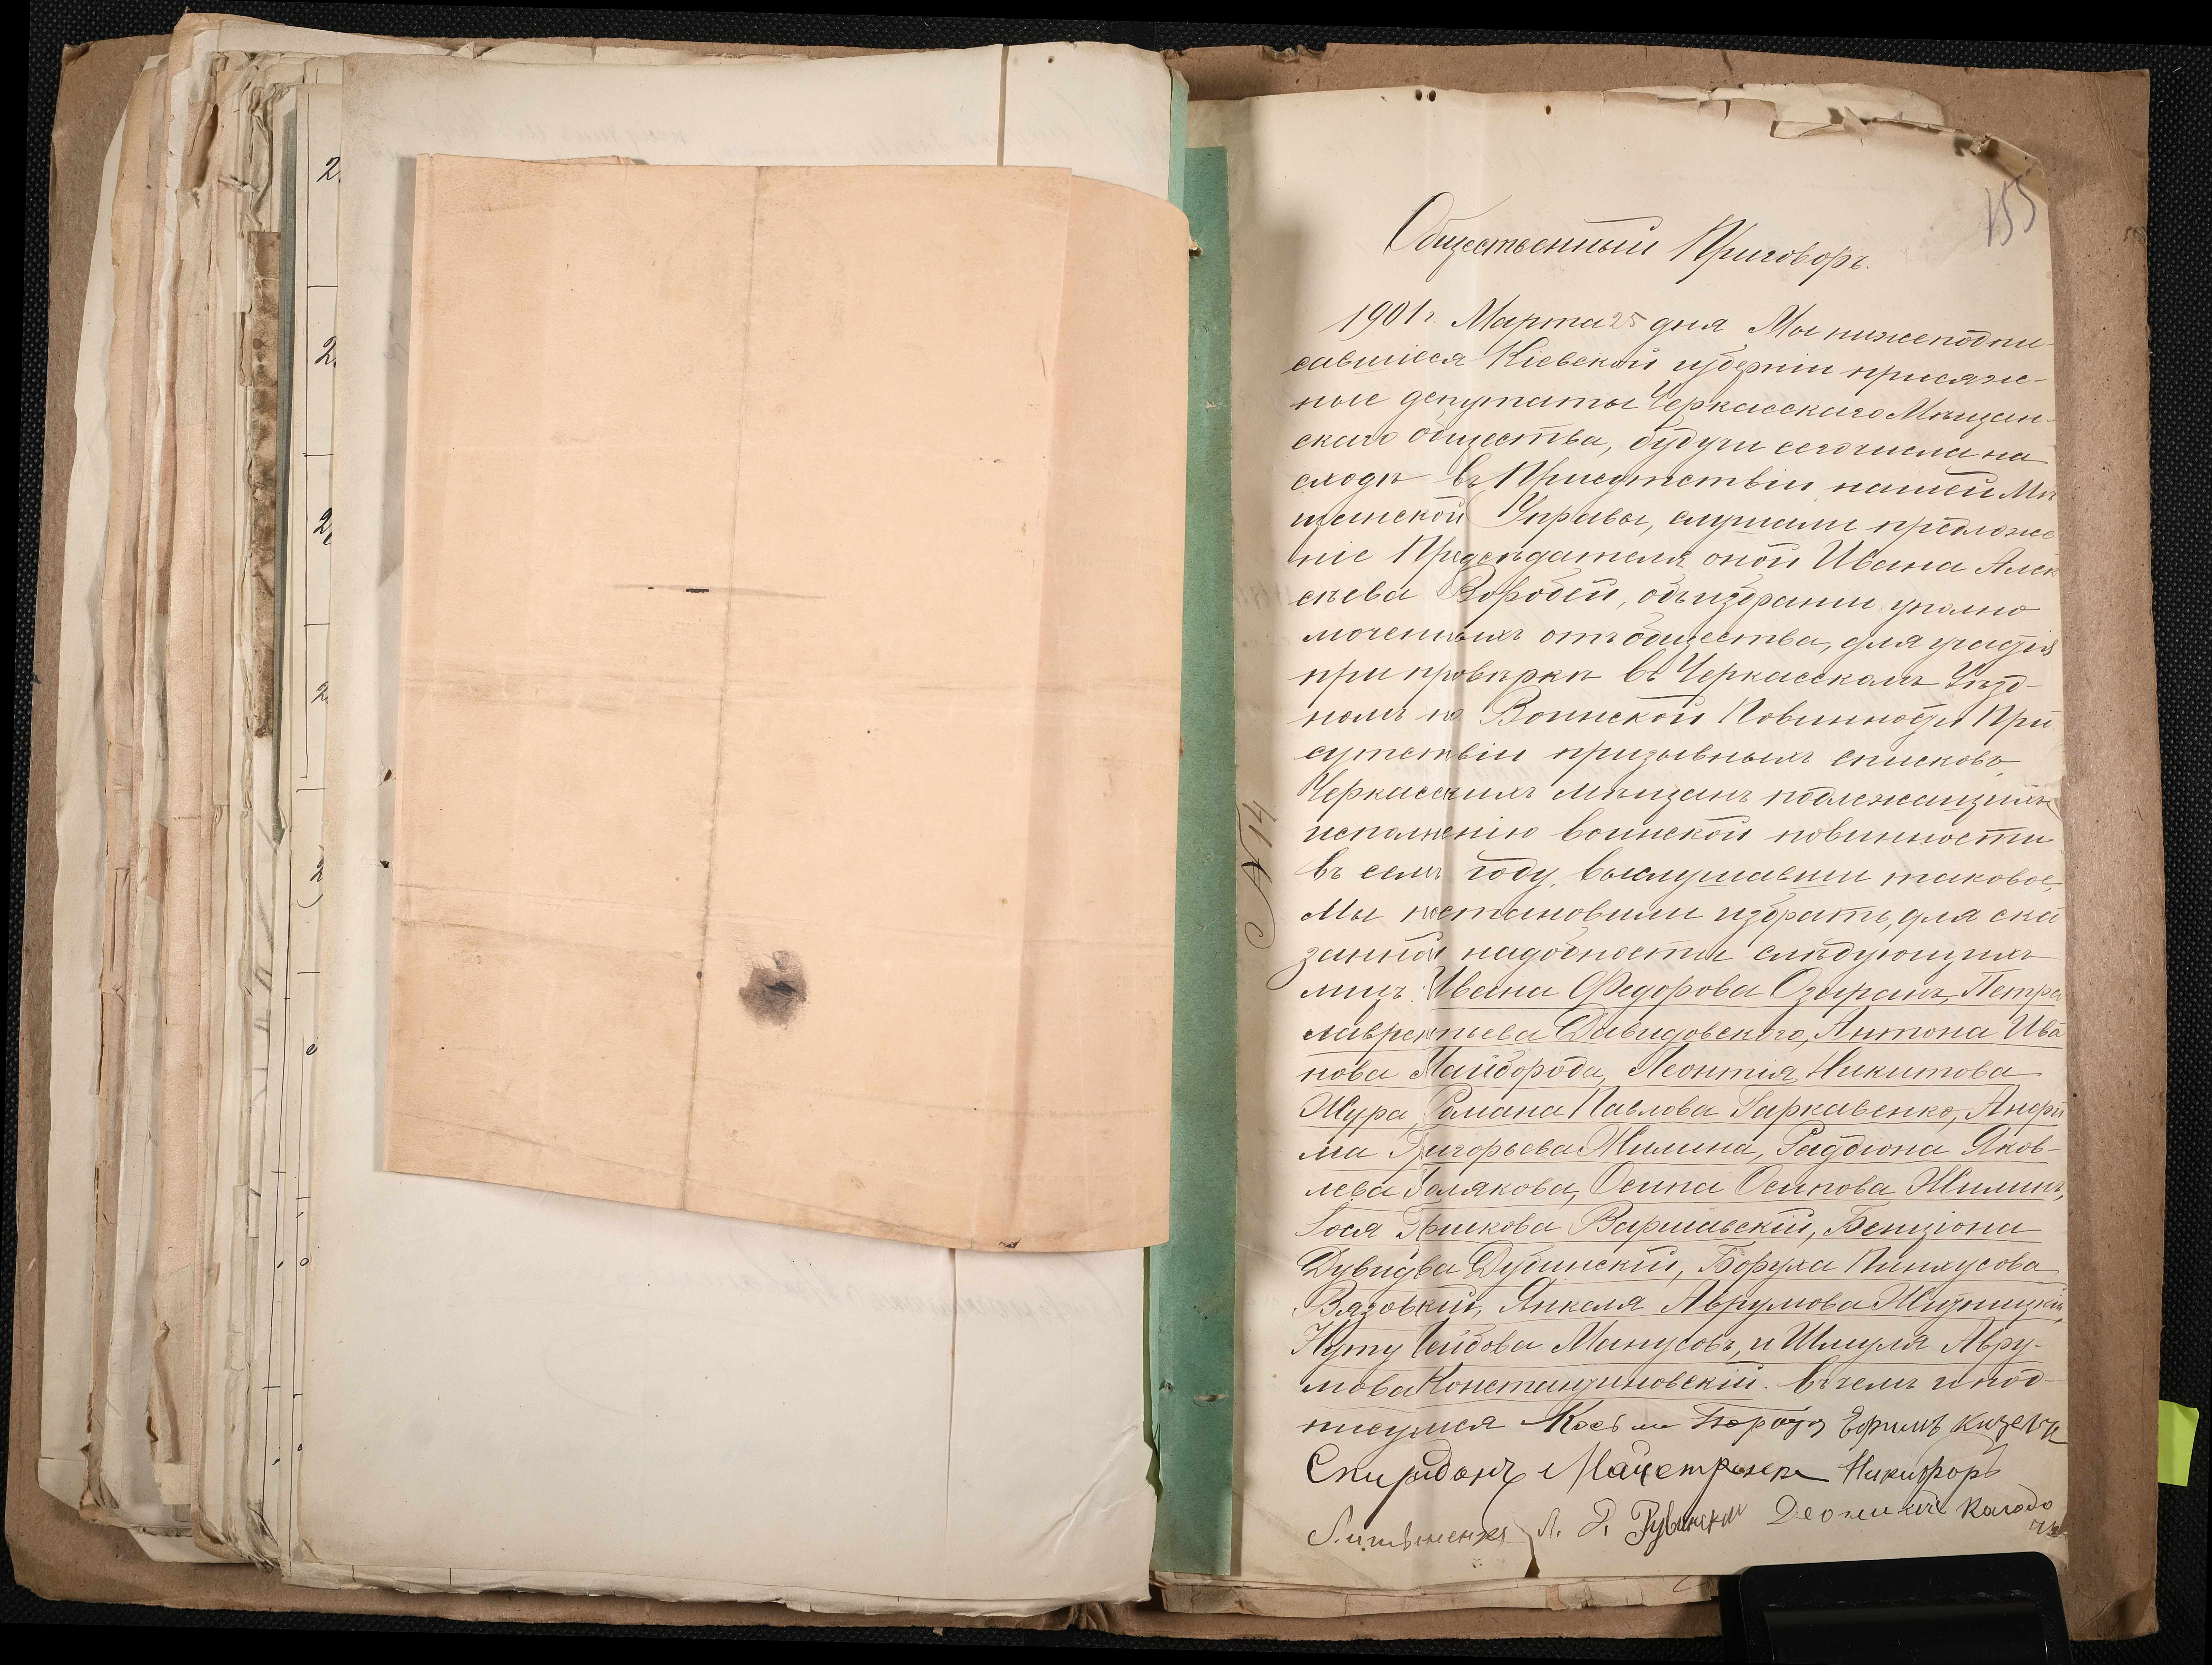 155
Общественный Приговоръ.
1901 г. Марта 25 дня Мы нижеподпи-
савшіеся Кіевской губерніи присяж-
ные депутаты Черкасскаго Мѣщан-
скаго общества, будучи сего числа на
сходѣ въ Присутствіи нашей Мѣ
щанской Управы, слушали предложе
ніе Предсѣдателя оной Ивана Алек
сѣева Воробей, объ избраніи уполно
моченныхъ отъ общества, для участія
при провѣркѣ въ Черкасскомъ Уѣзд-
номъ по Воинской Повинности При
сутствіи призывныхъ списковъ
Черкасскихъ мѣщанъ подлежащихъ
исполненію воинской повинности
въ семъ году. Выслушавши таковое,
Мы постановили избрать, для ска
занной надобности слѣдующихъ
лицъ: Ивана Федорова Озиранъ, Петра
Лаврентьева Давидовского, Антона Ива
нова Майборода, Леонтія Никитова
Жура, Романа Павлова Гаркавенко,
ма Григорьева Жилина, Радіона Яков-
лева Полякова, Осипа Осипова Жилинъ,
Іося Варшавскій, Бенціона
Дувидва Дубинскій, Боруха Пинхусова
Вязовкій, Янкеля Аврумова
Нуту Лейбова Манусовъ, и Шмуля Авру-
мова Константиновскій. въ чемъ и под-
писуемся
Спиридонъ Никифоръ
Литвиненко Л. Рубинскій
№ 14
2
2
2
2
2